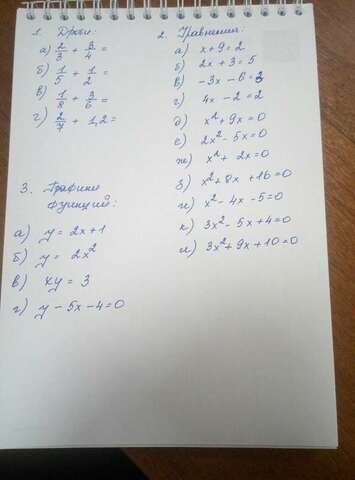 1. Дроби:
а) 2/3 + 3/4 =
б) 1/5 + 1/2 =
в) 1/8 + 3/6 =
г) 2/7 + 1,2 =
2. Уравнения:
а) x + 9 = 2
б) 2x + 3 = 5
в) -3x - 6 = 3
г) 4x - 2 = 2
д) x² + 9x = 0
е) 2x² - 5x = 0
ж) x² + 2x = 0
з) x² + 8x + 16 = 0
и) x² - 4x - 5 = 0
к) 3x² - 5x + 4 = 0
л) 3x² + 9x + 10 = 0
3. Графики
функций:
а) y = 2x + 1
б) y = 2x²
в) xy = 3
г) y - 5x - 4 = 0